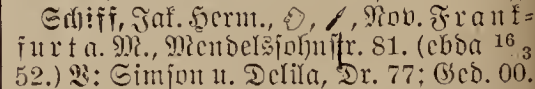 Schiff, Jak. Herm., Nov. Frank=
furt a. M., Mendelssohnstr. 81. (ebda 16 3
52.) V: Simson u. Delila, Dr. 77; Ged. 00.